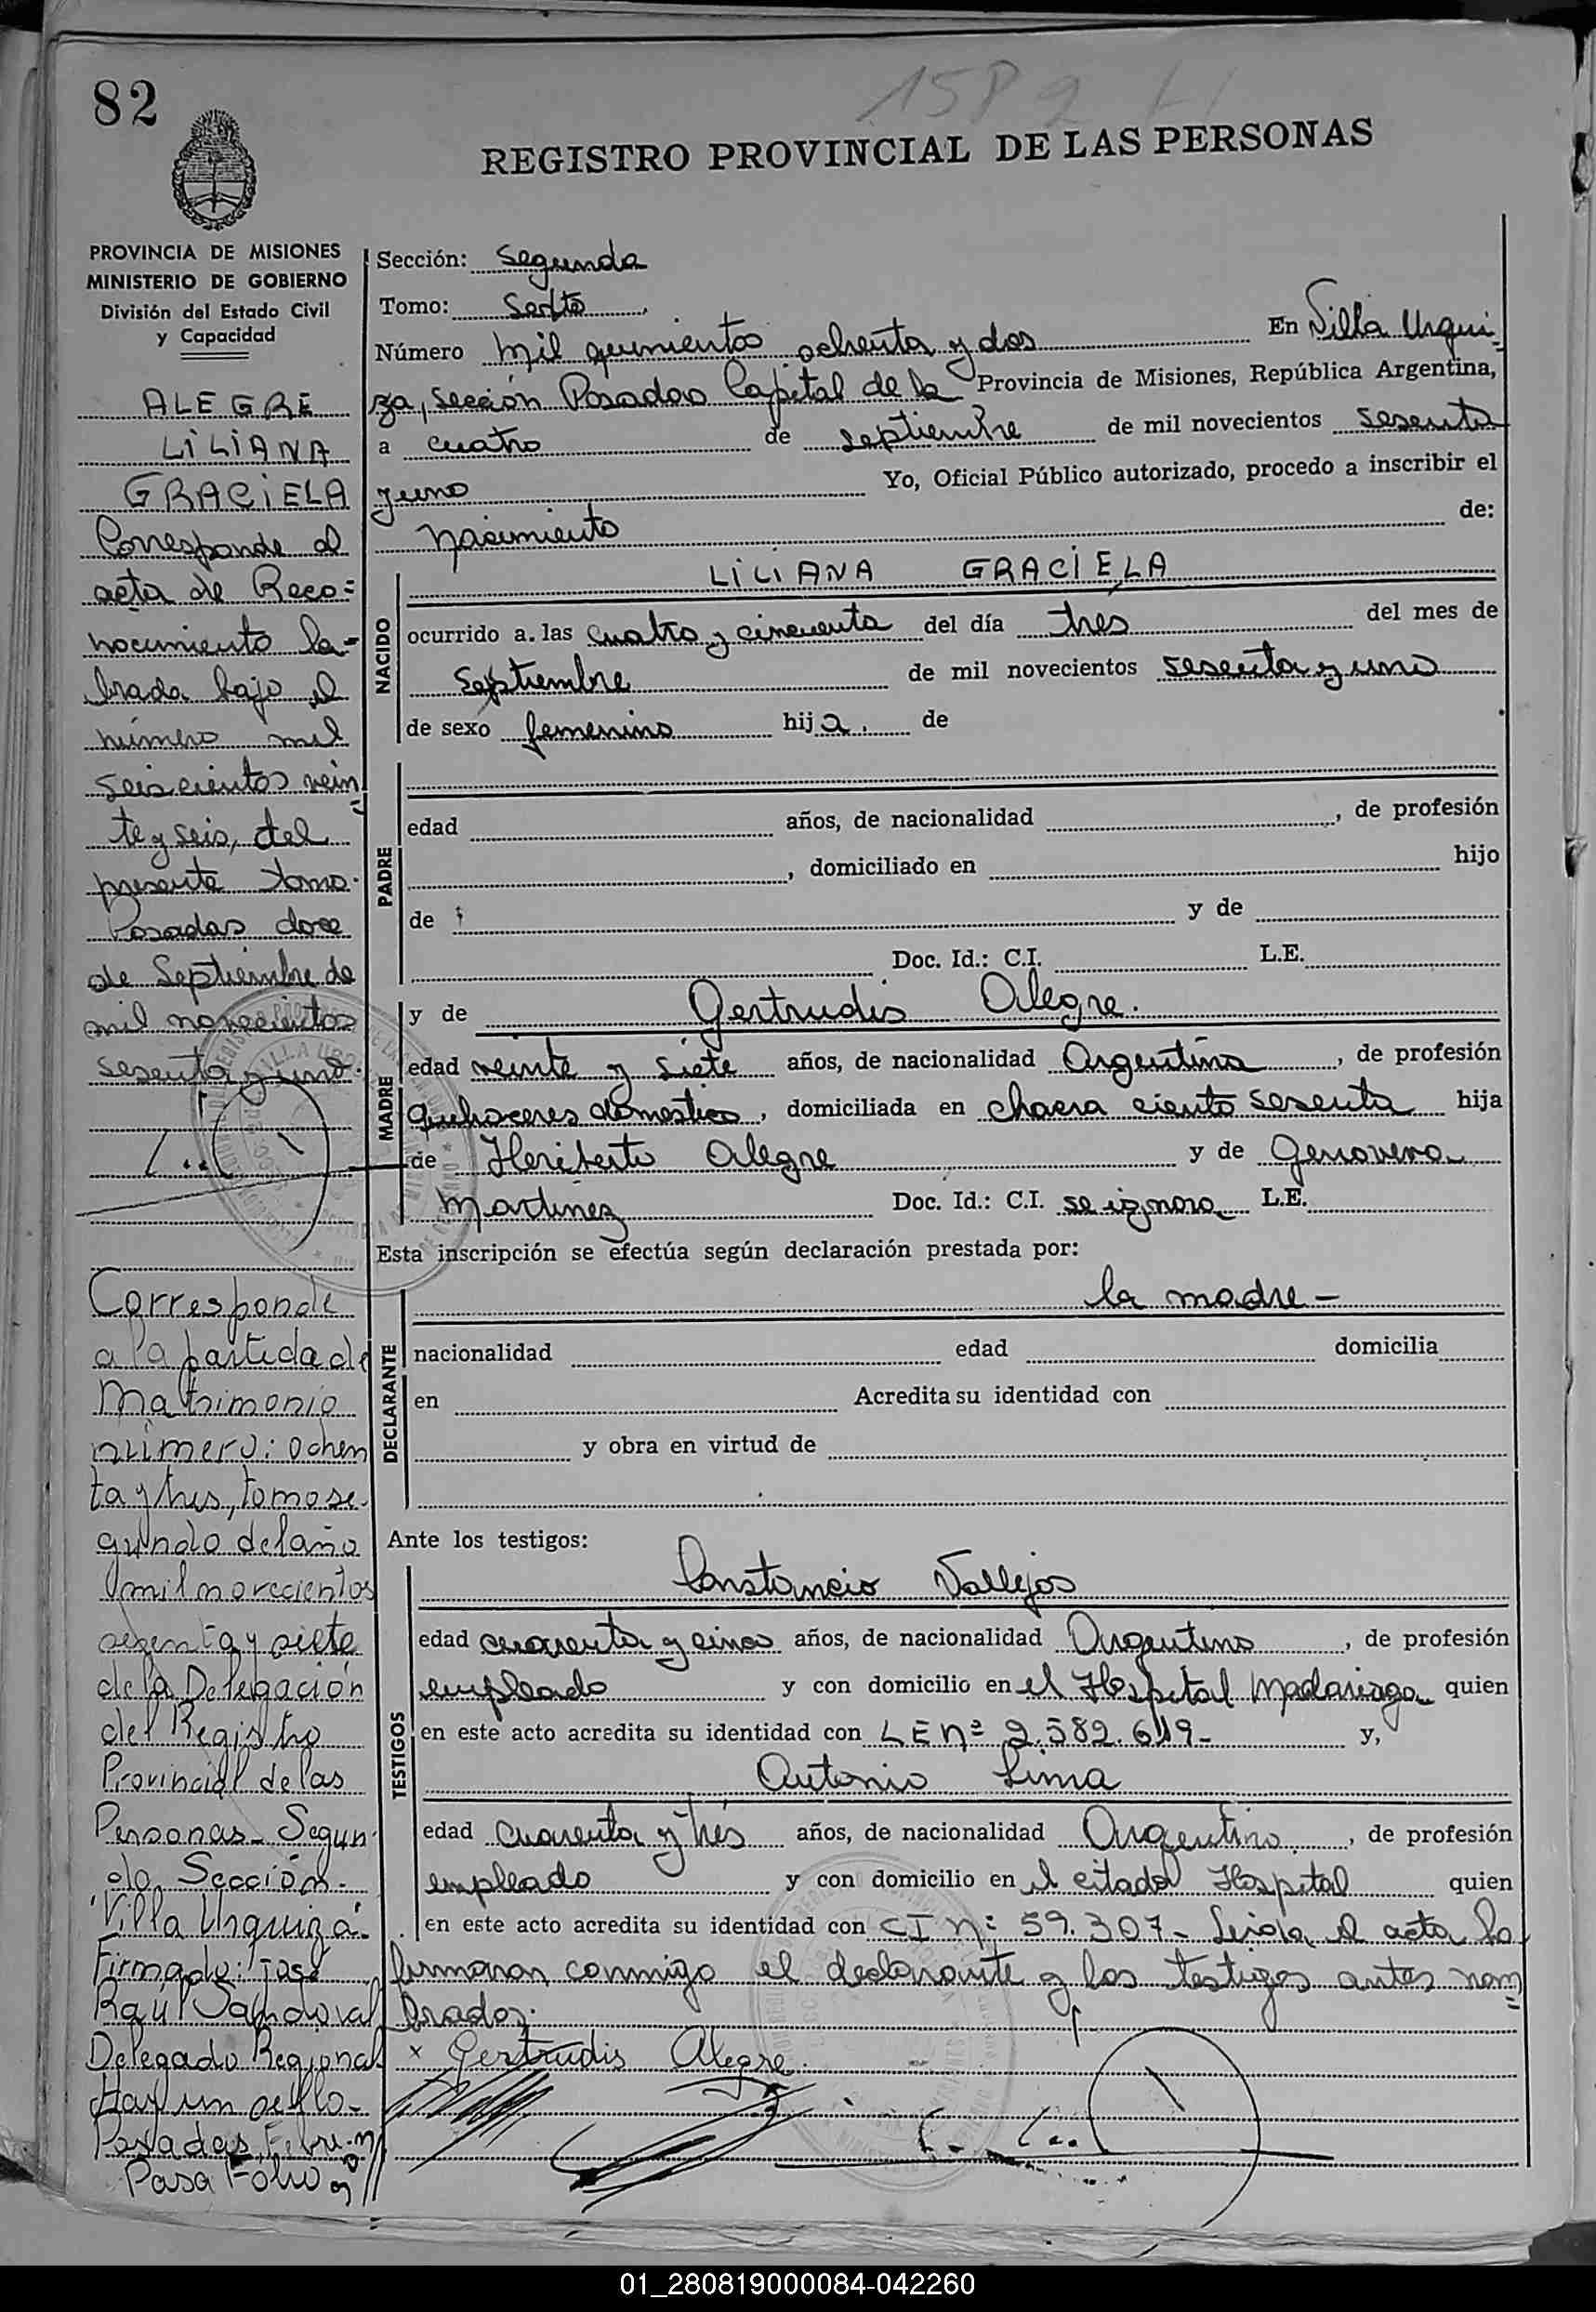 82
REGISTRO PROVINCIAL DE LAS PERSONAS
PROVINCIA DE MISIONES
MINISTERIO DE GOBIERNO
División del Estado Civil
y Capacidad
ALEGRE
LILIANA
GRACIELA
Corresponde al
acta de Reco=
nocimiento la-
brada bajo el
número mil
seiscientos vein
te y seis, del
presente tomo.
Posadas doce
de Septiembre de
mil novecientos
sesenta y uno.
Corresponde
a la partida de
Matrimonio
número: ochen
ta y tres, tomo se-
gundo del año
mil novecientos
sesenta y siete
de la Delegación
del Registro
Provincial de las
Personas - Segun
da Sección.
"Villa Urquiza".
Firmado: José
Raúl Sandoval
Delegado Regional
Hay un sello-
Posadas,
Pasa Folio
Sección: Segunda
Tomo: Sexto
Número mil quinientos ochenta y dos En Villa Urqui
za, sección Posadas Capital de la Provincia de Misiones, República Argentina,
a cuatro de septiembre de mil novecientos sesenta
y uno Yo, Oficial Público autorizado, procedo a inscribir el
nacimiento de:
NACIDO
LILIANA GRACIELA
ocurrido a las cuatro y cincuenta del día tres del mes de
Septiembre de mil novecientos sesenta y uno
de sexo femenino hija. de
PADRE
edad años, de nacionalidad , de profesión
, domiciliado en hijo
de y de
Doc. Id.: C.I. L.E.
MADRE
y de Gertrudis Alegre.
edad veinte y siete años, de nacionalidad Argentina , de profesión
quehaceres domestico , domiciliada en chacra ciento sesenta hija
de Heriberto Alegre y de Genoveva
Martinez Doc. Id.: C.I. se ignora L.E.
Esta inscripción se efectúa según declaración prestada por:
DECLARANTE
la madre -
nacionalidad edad domicilia
en Acredita su identidad con
y obra en virtud de
Ante los testigos:
TESTIGOS
Constancio Vallejos
edad cuarenta y cinco años, de nacionalidad Argentino , de profesión
empleado y con domicilio en el Hospital Madariaga quien
en este acto acredita su identidad con LE nº 2.582.619- y,
Antonio Lima
edad cuarenta y tres años, de nacionalidad Argentino , de profesión
empleado y con domicilio en el citado Hospital quien
en este acto acredita su identidad con CI nº 59.307- Leida el acta la
firmaron conmigo el declarante y los testigos antes nom
brados.
x Gertrudis Alegre.
01_280819000084-042260